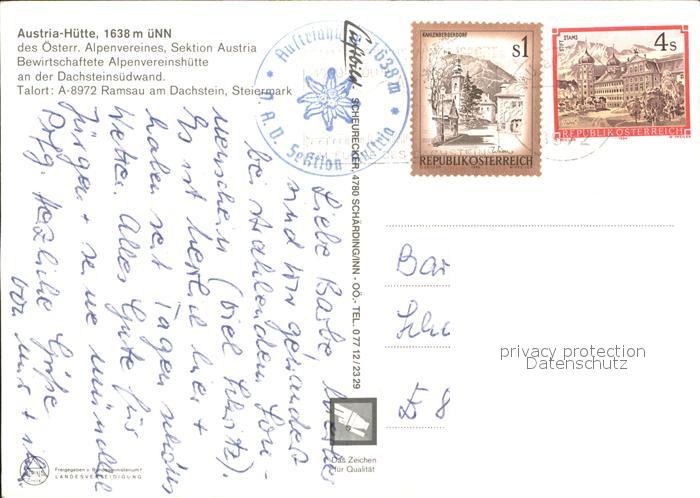 Austria-Hütte, 1638 m üNN
des Österr. Alpenvereines, Sektion Austria
Bewirtschaftete Alpenvereinshütte
an der Dachsteinsüdwand.
Talort: A-8972 Ramsau am Dachstein, Steiermark
Austriahütte 1638 m
Sektion Austria
KAHLENBERGERDORF
s1
REPUBLIK ÖSTERREICH
STIFT STAMS
4s
REPUBLIK ÖSTERREICH
Luftbild: SCHEURECKER, 4780 SCHÄRDING/INN - OÖ.- TEL. 0 77 12 / 23 29
Liebe Barbe,
sind wir gewandert
bei strahlendem Son-
nenschein (viel Schwitz).
Es ist herrlich hier +
haben seit Tagen schönes
Wetter. Alles Gute für
Jürgen + seine mündliche
Prfg. Herzliche Grüße
von
Bar
D 8
privacy protection
Datenschutz
Das Zeichen
für Qualität
Freigegeben v. Bundesministerium f.
LANDESVERTEIDIGUNG